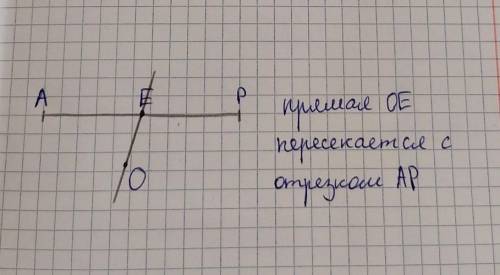 A E P
O
прямая OE
пересекается с
отрезком AP